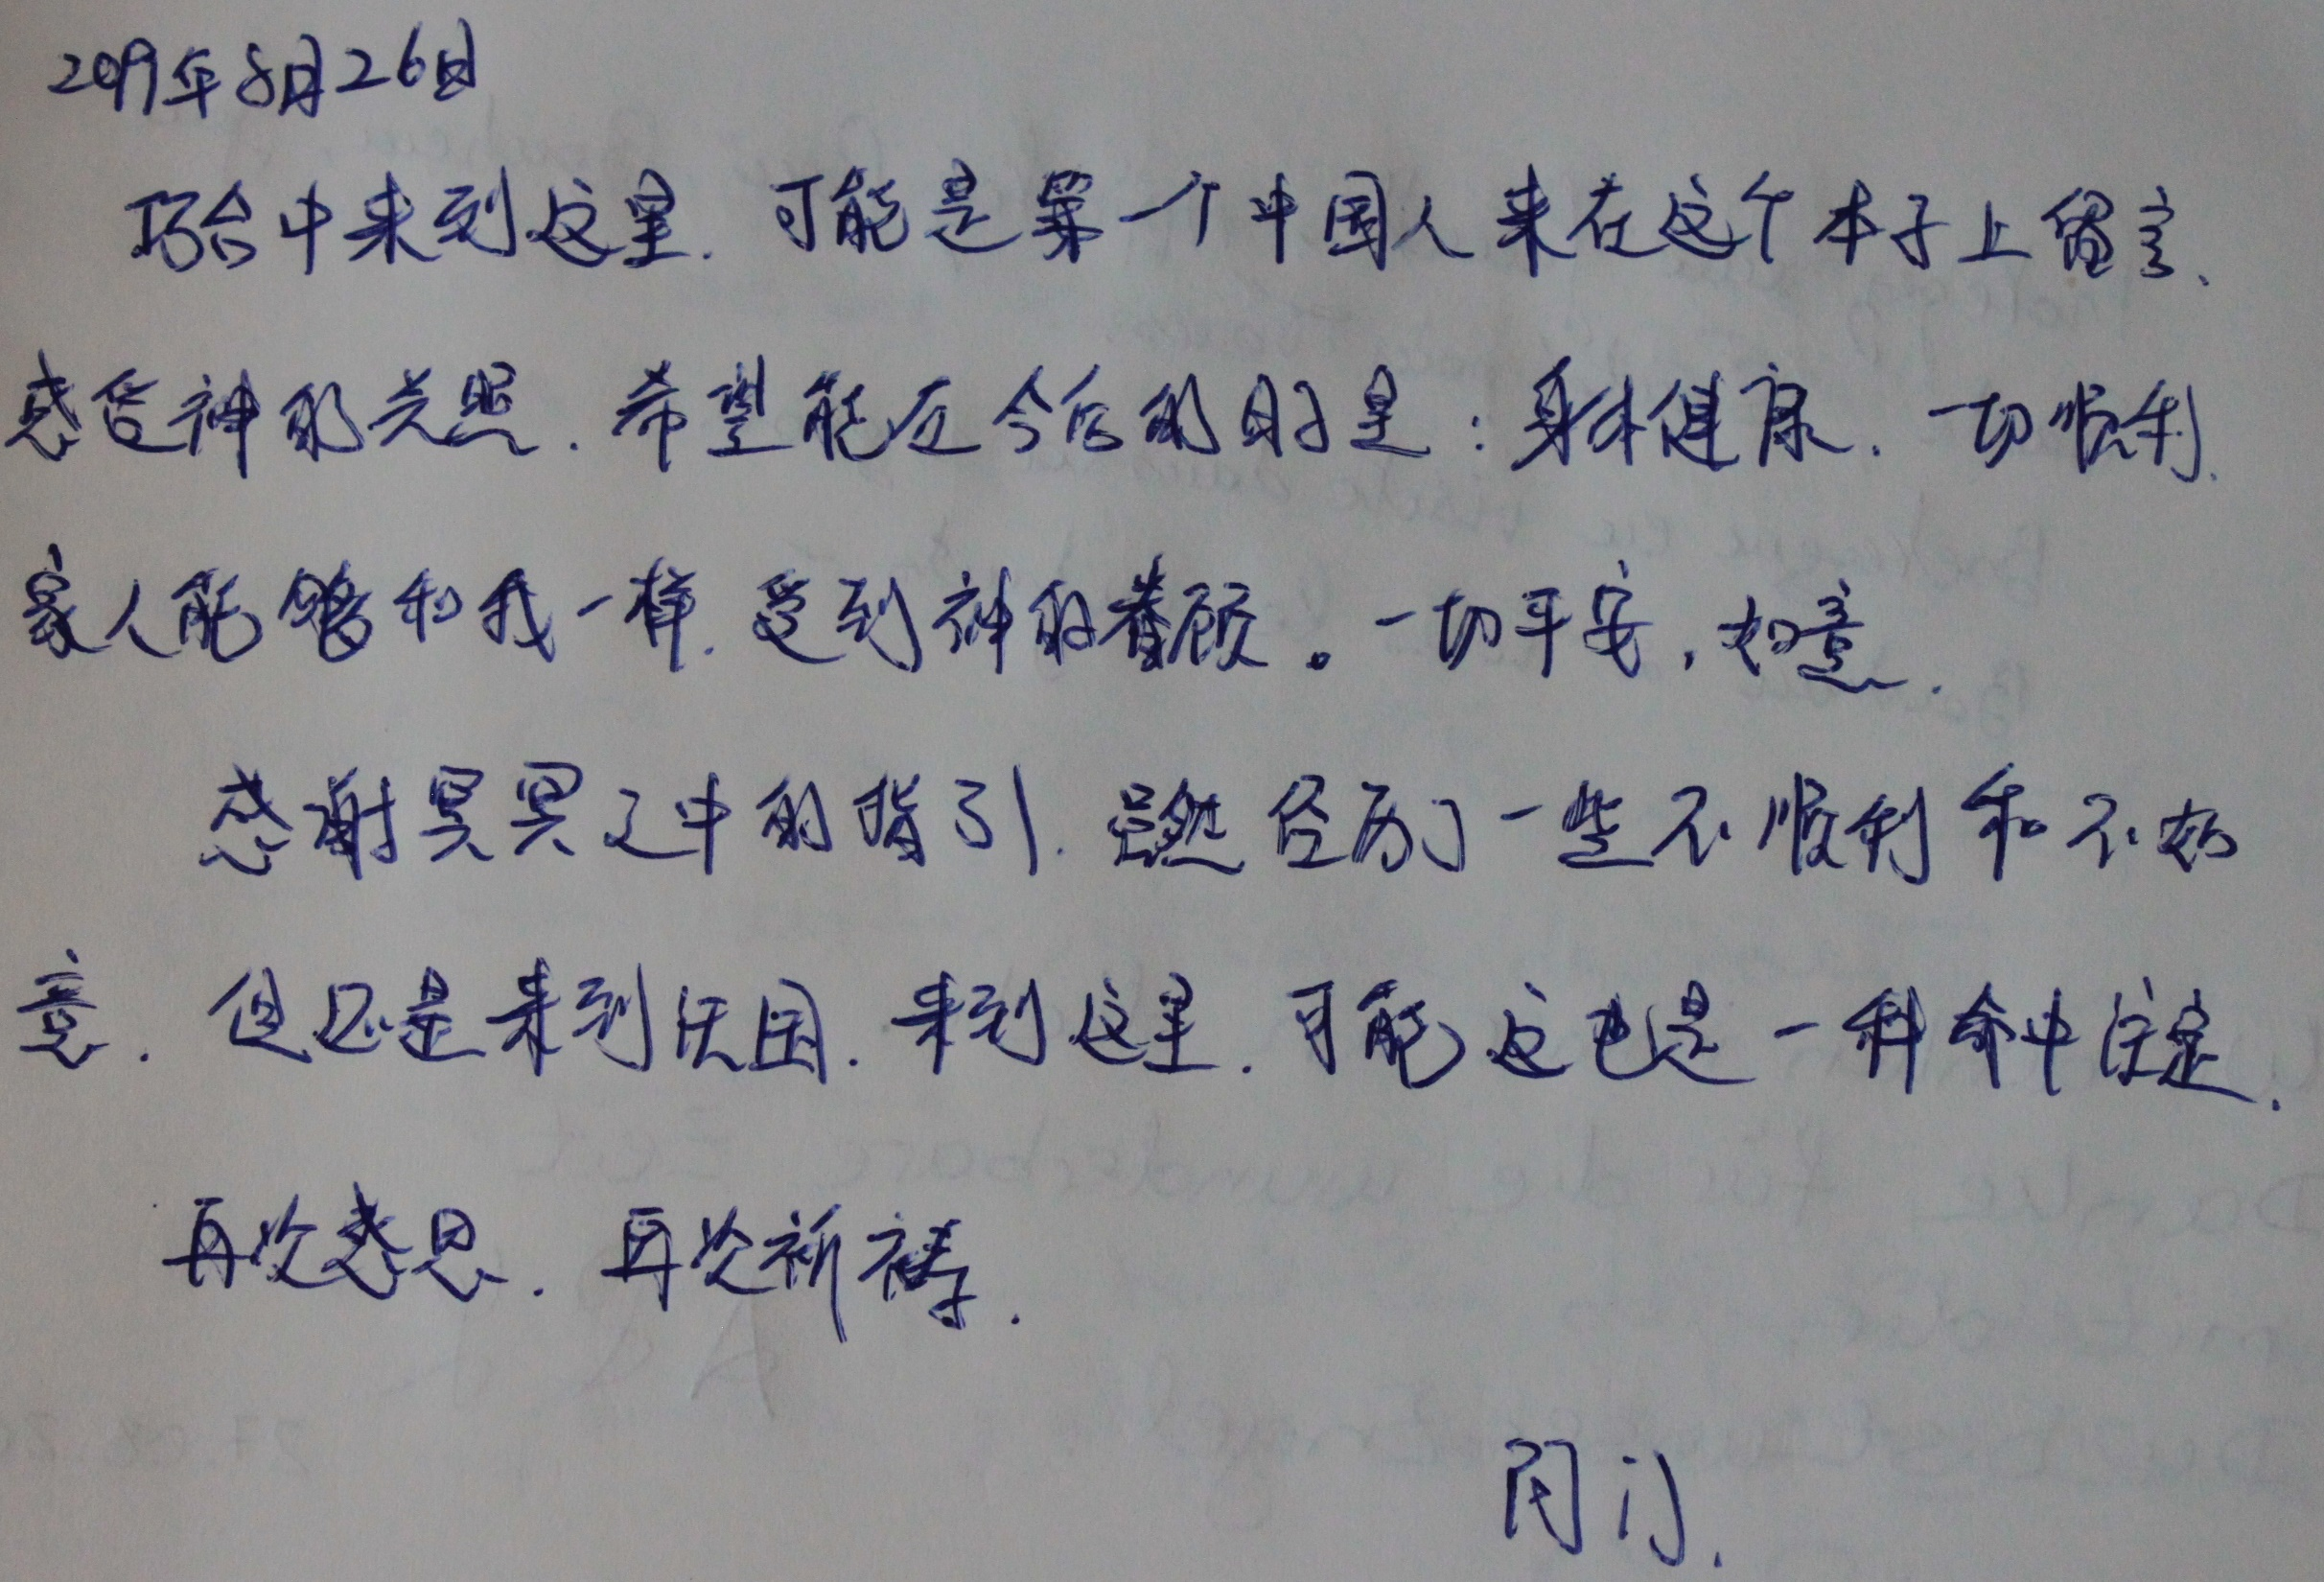 2019年8月26日
巧合中来到这里.可能是第一个中国人来在这个本子上留言.
感受神的光照.希望能在今后的时里:身体健康.一切顺利.
家人能够和我一样.受到神的眷顾。一切平安,如意.
感谢冥冥之中的指引.虽然经历了一些不顺利和不如
意.但还是来到法国.来到这里.可能这也是一种命中注定.
再次感恩.再次祈祷.